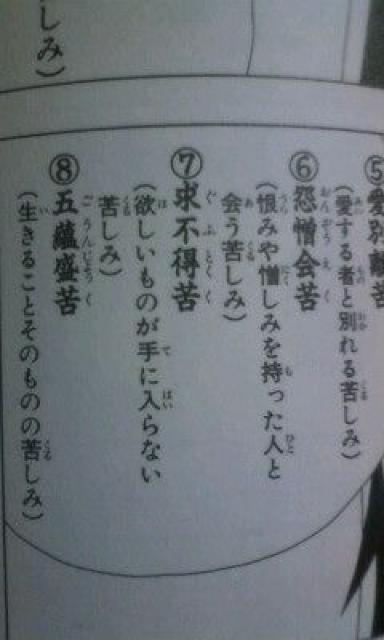 ⑤愛別離苦
（愛する者と別れる苦しみ）
⑥怨憎会苦
（恨みや憎しみを持った人と
会う苦しみ）
⑦求不得苦
（欲しいものが手に入らない
苦しみ）
⑧五蘊盛苦
（生きることそのものの苦しみ）
しみ）